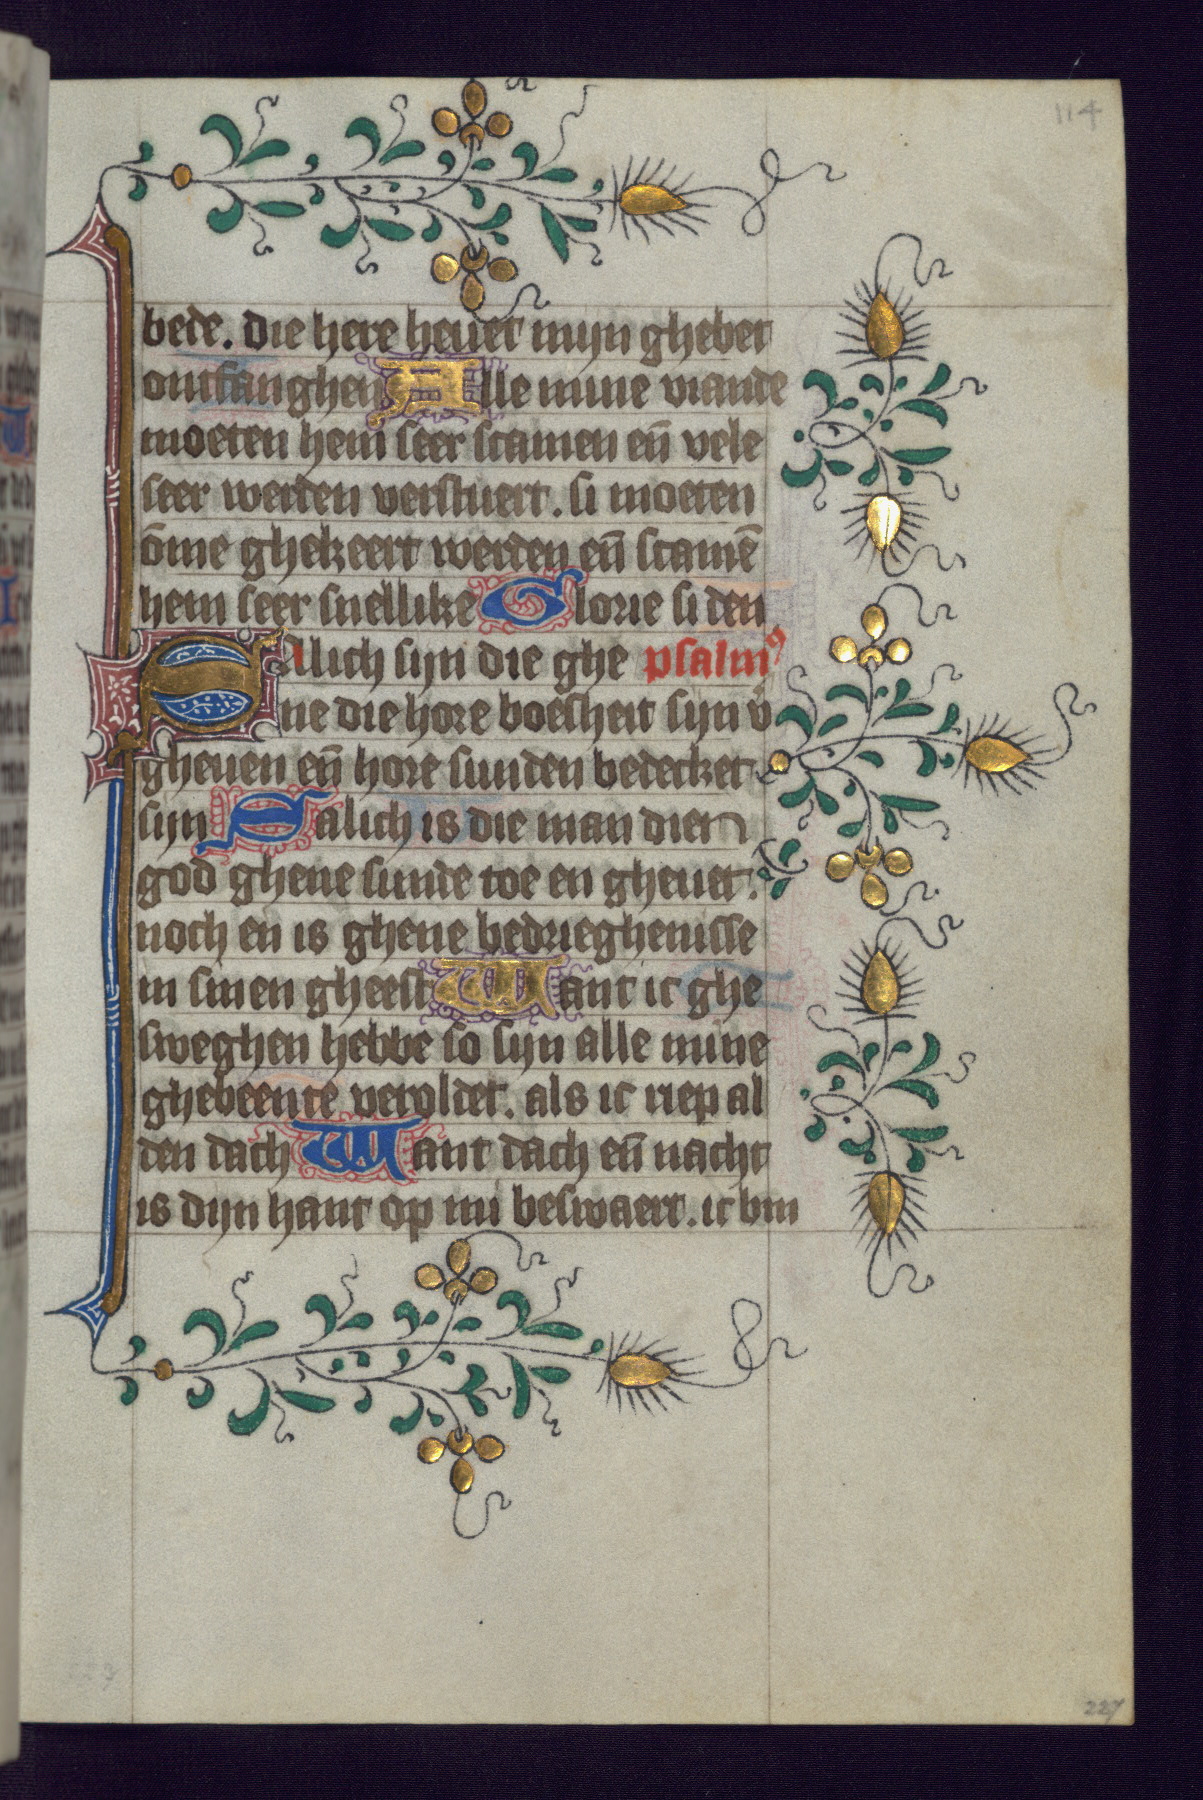 114
bede. die here heuet mijn ghebet
ontfanghen Alle mine viande
moeten hem seer scamen en̄ vele
seer werden verstuert. si moeten
ōme ghekeert werden en̄ scamē
hem seer snellike Glorie si den
Salich sijn die ghe psalm⁹
ne die hore boesheit sijn v̄
gheuen en̄ hore sunden bedecket
sijn Salich is die man dien
god ghene sunde toe en gheuet.
noch en is ghene bedrieghenisse
in sinen gheest Want ic ghe
sweghen hebbe so sijn alle mine
ghebeente veroldet. als ic riep al
den dach Want dach en̄ nacht
is dijn hant op mi beswaert. ic bin
227